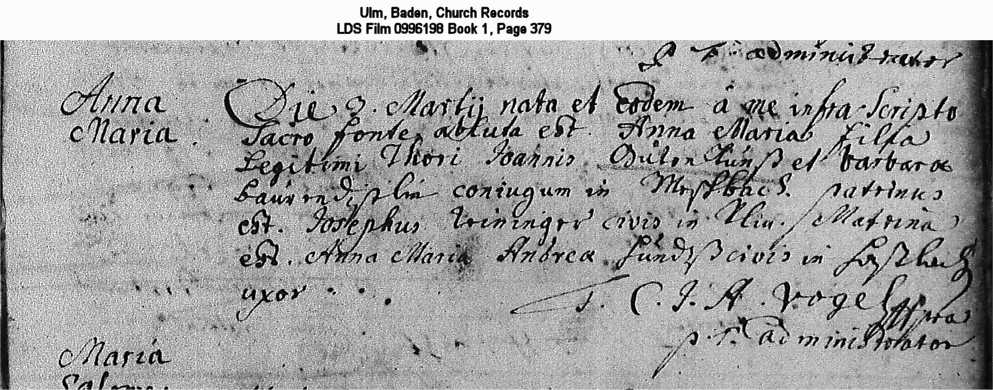 Ulm, Baden, Church Records
LDS Film 0996198 Book 1, Page 379
p. t. administrator
Anna
Maria.
Die 3. Martij nata et eodem â me infra Scripto
Sacro fonte abluta est. Anna Maria filia
Legitimi Thori Joannis et barbara
coniugum in patrinus
est. Josephus civis in Ulm. Matrina
est. Anna Maria Andreæ civis in
uxor
C. J. A. Vogel
p. t. administrator
Maria
Salome